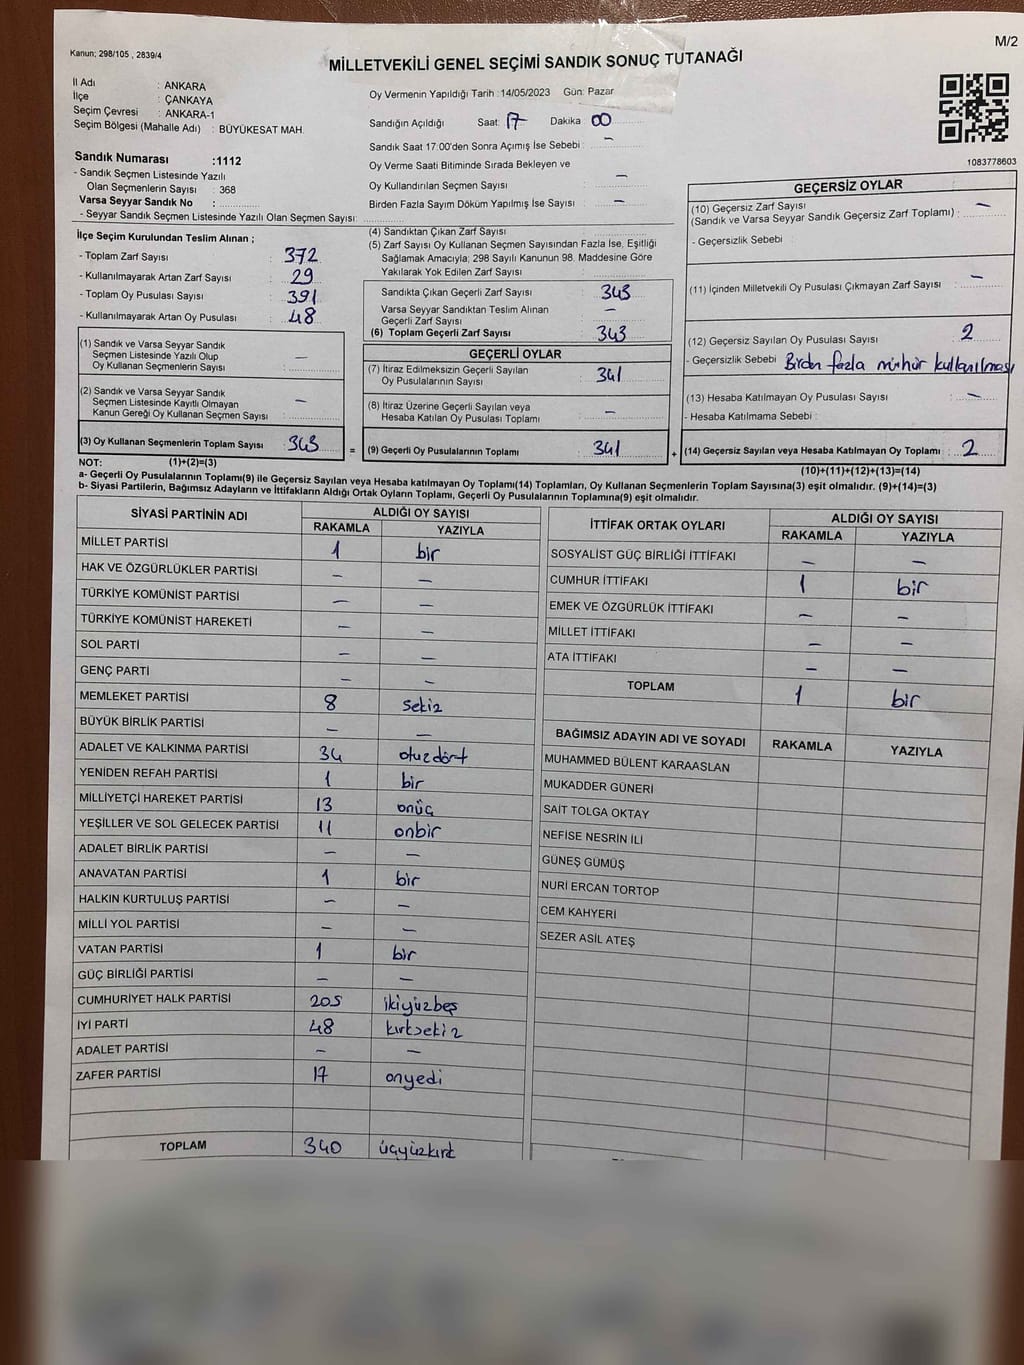 Kanun; 298/105 , 2839/4
M/2
MİLLETVEKİLİ GENEL SEÇİMİ SANDIK SONUÇ TUTANAĞI
İl Adı : ANKARA
İlçe : ÇANKAYA
Seçim Çevresi : ANKARA-1
Seçim Bölgesi (Mahalle Adı) : BÜYÜKESAT MAH.
Sandık Numarası :1112
- Sandık Seçmen Listesinde Yazılı
Olan Seçmenlerin Sayısı : 368
Varsa Seyyar Sandık No :
- Seyyar Sandık Seçmen Listesinde Yazılı Olan Seçmen Sayısı:
Oy Vermenin Yapıldığı Tarih :14/05/2023 Gün: Pazar
Sandığın Açıldığı Saat: 17 Dakika 00
Sandık Saat 17:00'den Sonra Açımış İse Sebebi : –
Oy Verme Saati Bitiminde Sırada Bekleyen ve
Oy Kullandırılan Seçmen Sayısı –
Birden Fazla Sayım Döküm Yapılmış İse Sayısı –
1083778603
İlçe Seçim Kurulundan Teslim Alınan ;
- Toplam Zarf Sayısı : 372
- Kullanılmayarak Artan Zarf Sayısı : 29
- Toplam Oy Pusulası Sayısı : 391
- Kullanılmayarak Artan Oy Pusulası : 48
(1) Sandık ve Varsa Seyyar Sandık
Seçmen Listesinde Yazılı Olup
Oy Kullanan Seçmenlerin Sayısı : –
(2) Sandık ve Varsa Seyyar Sandık
Seçmen Listesinde Kayıtlı Olmayan
Kanun Gereği Oy Kullanan Seçmen Sayısı : –
(3) Oy Kullanan Seçmenlerin Toplam Sayısı : 343
(4) Sandıktan Çıkan Zarf Sayısı :
(5) Zarf Sayısı Oy Kullanan Seçmen Sayısından Fazla İse, Eşitliği
Sağlamak Amacıyla; 298 Sayılı Kanunun 98. Maddesine Göre
Yakılarak Yok Edilen Zarf Sayısı :
Sandıkta Çıkan Geçerli Zarf Sayısı : 343
Varsa Seyyar Sandıktan Teslim Alınan
Geçerli Zarf Sayısı : –
(6) Toplam Geçerli Zarf Sayısı : 343
GEÇERLİ OYLAR
(7) İtiraz Edilmeksizin Geçerli Sayılan
Oy Pusulalarının Sayısı : 341
(8) İtiraz Üzerine Geçerli Sayılan veya
Hesaba Katılan Oy Pusulası Toplamı : –
= (9) Geçerli Oy Pusulalarının Toplamı : 341
GEÇERSİZ OYLAR
(10) Geçersiz Zarf Sayısı
(Sandık ve Varsa Seyyar Sandık Geçersiz Zarf Toplamı) : –
- Geçersizlik Sebebi :
(11) İçinden Milletvekili Oy Pusulası Çıkmayan Zarf Sayısı : –
(12) Geçersiz Sayılan Oy Pusulası Sayısı : 2
- Geçersizlik Sebebi : Birden fazla mühür kullanılması
(13) Hesaba Katılmayan Oy Pusulası Sayısı : –
- Hesaba Katılmama Sebebi :
+ (14) Geçersiz Sayılan veya Hesaba Katılmayan Oy Toplamı : 2
NOT: (1)+(2)=(3)
(10)+(11)+(12)+(13)=(14)
a- Geçerli Oy Pusulalarının Toplamı(9) ile Geçersiz Sayılan veya Hesaba katılmayan Oy Toplamı(14) Toplamları, Oy Kullanan Seçmenlerin Toplam Sayısına(3) eşit olmalıdır. (9)+(14)=(3)
b- Siyasi Partilerin, Bağımsız Adayların ve İttifakların Aldığı Ortak Oyların Toplamı, Geçerli Oy Pusulalarının Toplamına(9) eşit olmalıdır.
SİYASİ PARTİNİN ADI ALDIĞI OY SAYISI
RAKAMLA YAZIYLA
MİLLET PARTİSİ 1 bir
HAK VE ÖZGÜRLÜKLER PARTİSİ – –
TÜRKİYE KOMÜNİST PARTİSİ – –
TÜRKİYE KOMÜNİST HAREKETİ – –
SOL PARTİ – –
GENÇ PARTİ – –
MEMLEKET PARTİSİ 8 sekiz
BÜYÜK BİRLİK PARTİSİ – –
ADALET VE KALKINMA PARTİSİ 34 otuzdört
YENİDEN REFAH PARTİSİ 1 bir
MİLLİYETÇİ HAREKET PARTİSİ 13 onüç
YEŞİLLER VE SOL GELECEK PARTİSİ 11 onbir
ADALET BİRLİK PARTİSİ – –
ANAVATAN PARTİSİ 1 bir
HALKIN KURTULUŞ PARTİSİ – –
MİLLİ YOL PARTİSİ – –
VATAN PARTİSİ 1 bir
GÜÇ BİRLİĞİ PARTİSİ – –
CUMHURİYET HALK PARTİSİ 205 ikiyüzbeş
İYİ PARTİ 48 kırksekiz
ADALET PARTİSİ – –
ZAFER PARTİSİ 17 onyedi
TOPLAM 340 üçyüzkırk
İTTİFAK ORTAK OYLARI ALDIĞI OY SAYISI
RAKAMLA YAZIYLA
SOSYALİST GÜÇ BİRLİĞİ İTTİFAKI – –
CUMHUR İTTİFAKI 1 bir
EMEK VE ÖZGÜRLÜK İTTİFAKI – –
MİLLET İTTİFAKI – –
ATA İTTİFAKI – –
TOPLAM 1 bir
BAĞIMSIZ ADAYIN ADI VE SOYADI RAKAMLA YAZIYLA
MUHAMMED BÜLENT KARAASLAN
MUKADDER GÜNERİ
SAİT TOLGA OKTAY
NEFİSE NESRİN İLİ
GÜNEŞ GÜMÜŞ
NURİ ERCAN TORTOP
CEM KAHYERİ
SEZER ASİL ATEŞ